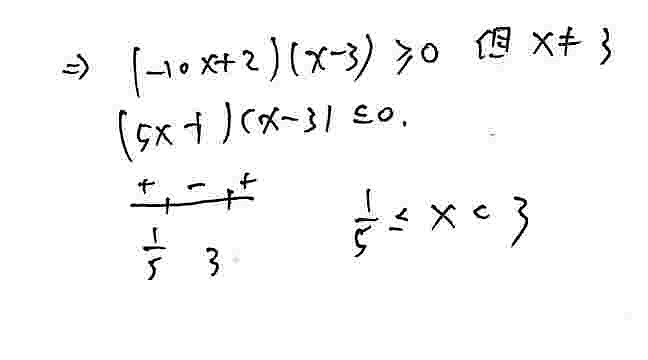 ⇒ (-10x+2)(x-3) ≥ 0 但 x ≠ 3
(5x-1)(x-3) ≤ 0.
+ - +
1/5 3 1/5 ≤ x < 3